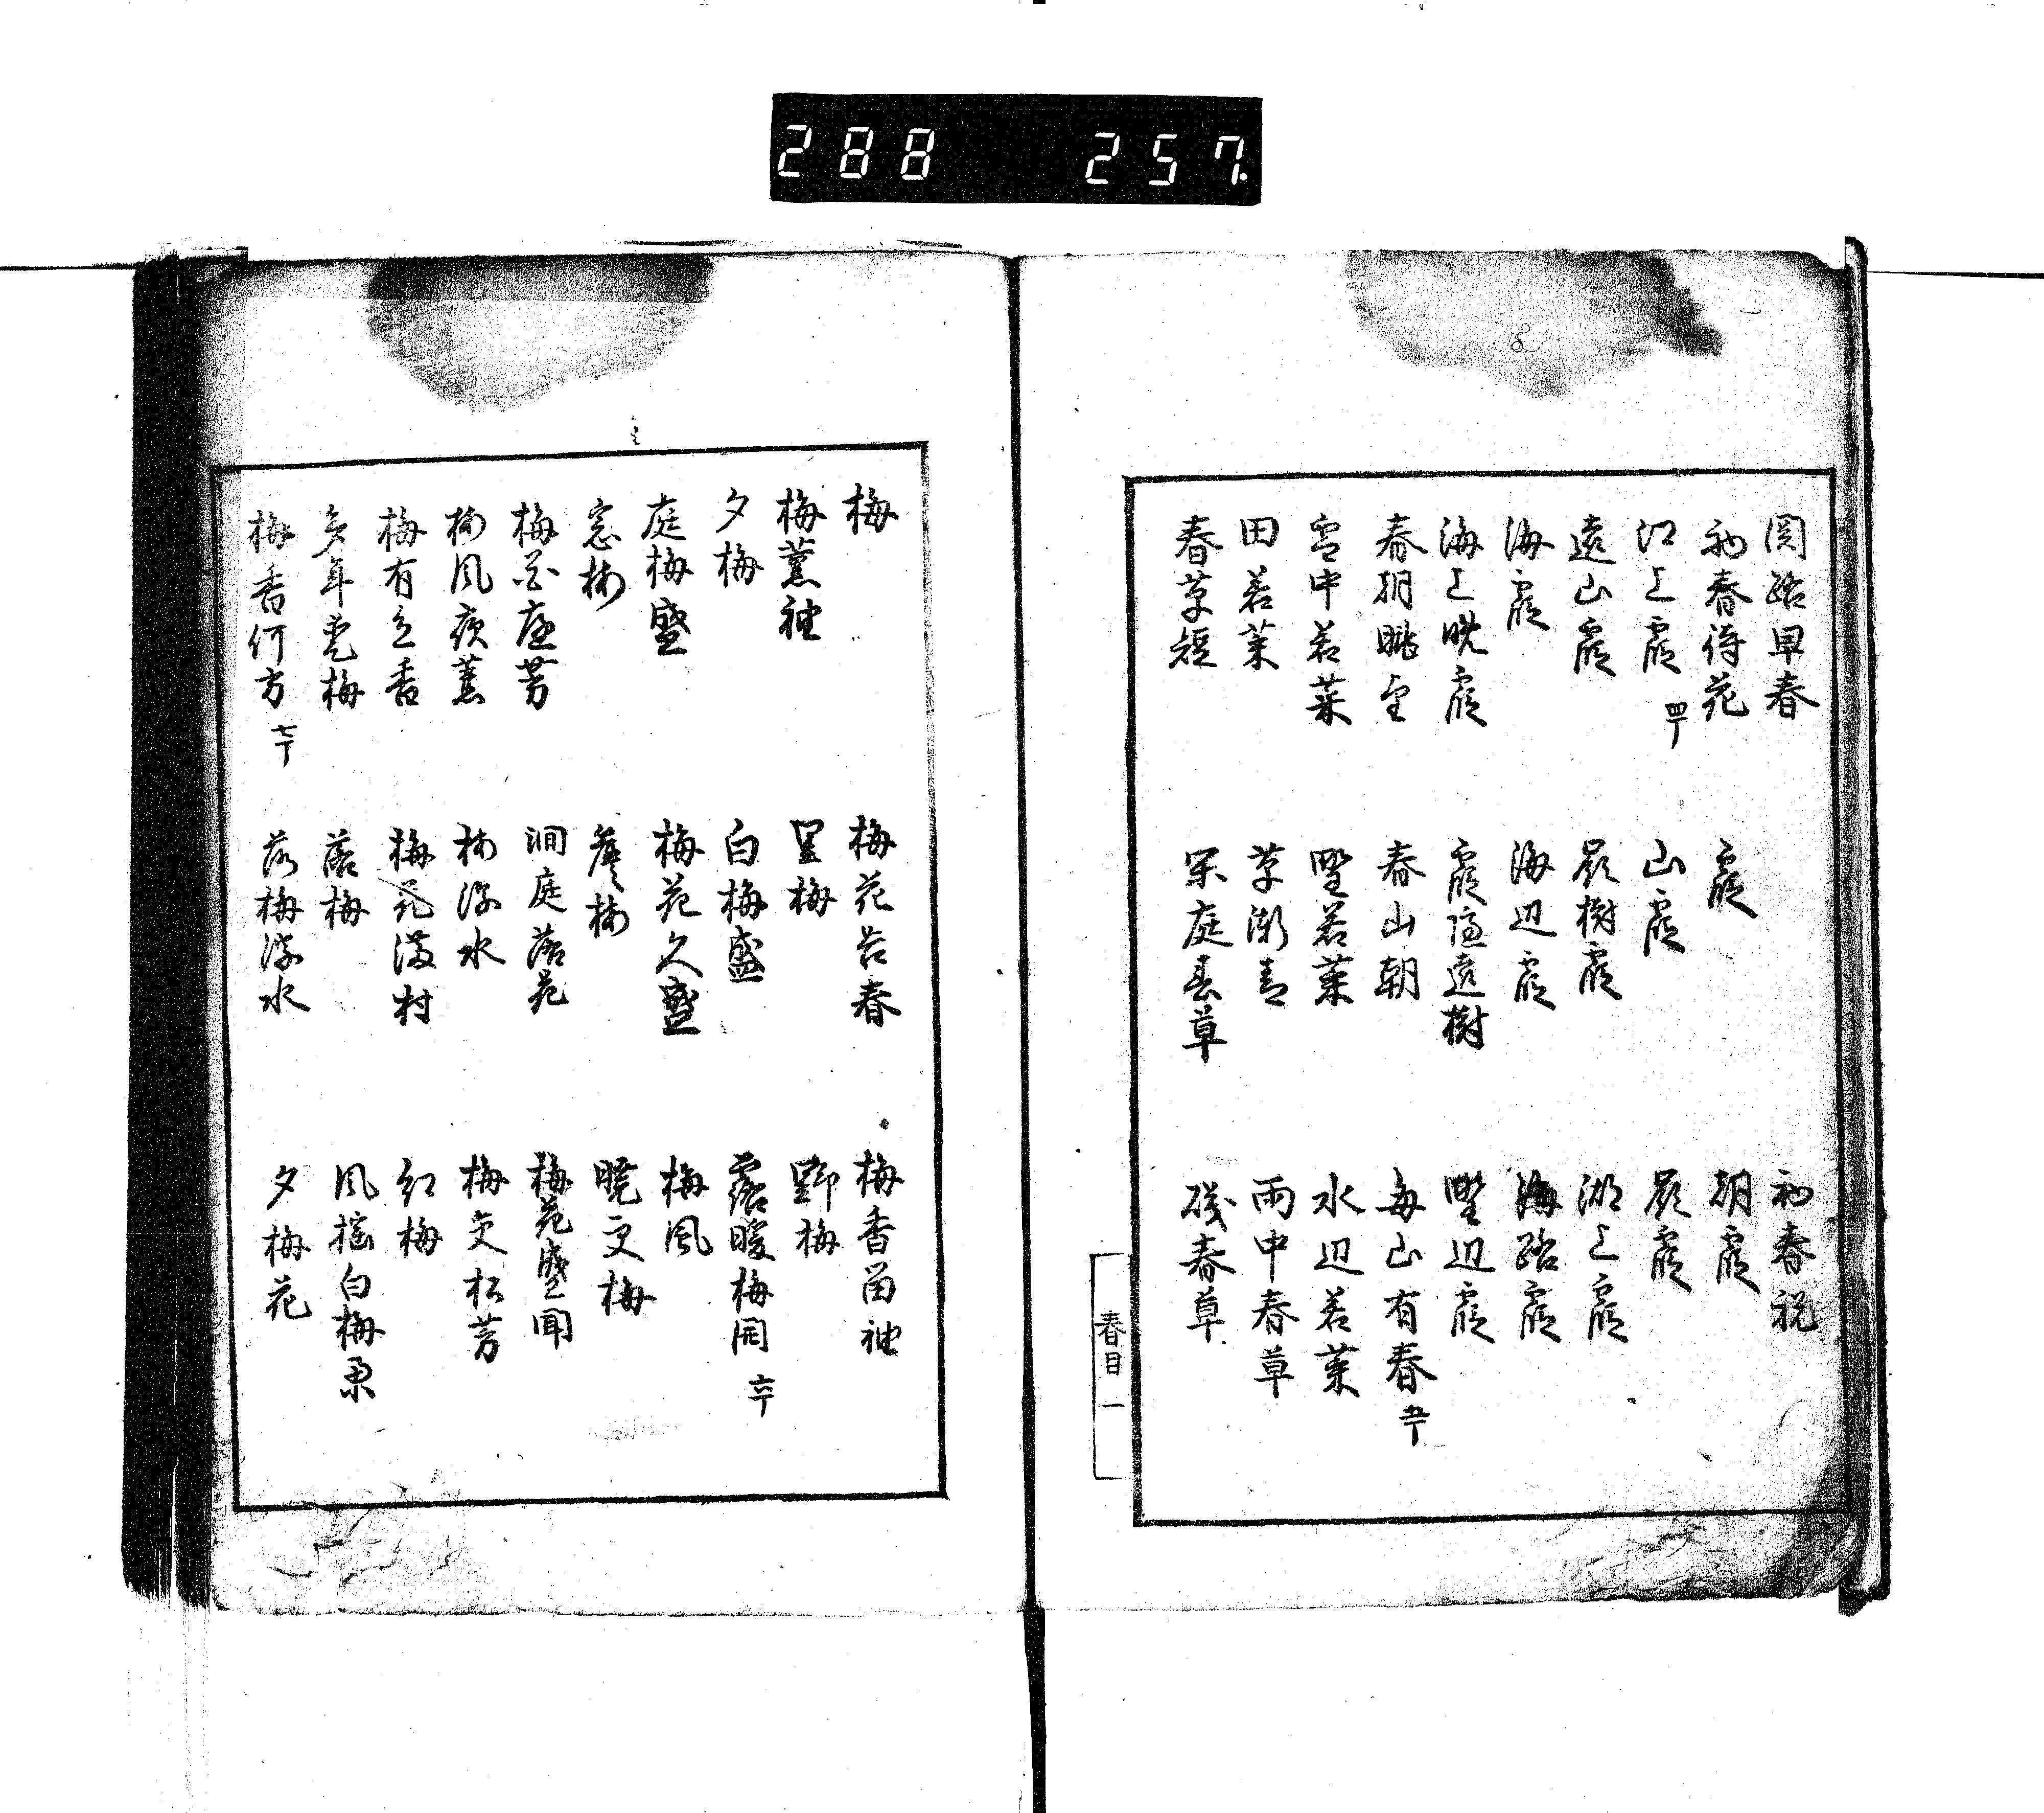 288 257
関路早春
初春祝
初春待花
霞
朝霞
江上霞 四丁
山霞
嶺霞
遠山霞
嶺樹霞
湖上霞
海霞
海辺霞
海路霞
海上晩霞
霞隠遠樹
野辺霞
春朝眺望
春山朝
毎山有春 五丁
雪中若菜
野若菜
水辺若菜
田若菜
草漸青
雨中春草
春草短
閑庭春草
磯春草
春目 一
梅
梅花告春
梅香留袖
梅薫袖
里梅
野梅
夕梅
白梅盛
露暖梅開 六丁
庭梅盛
梅花久盛
梅風
窓梅
簷梅
暁更梅
梅花盛開
澗庭落花
梅風夜薫
梅浮水
梅交松芳
梅有色香
梅花満村
紅梅
多年愛梅
落梅
風揺白梅
梅香何方 七丁
落梅浮水
夕梅花